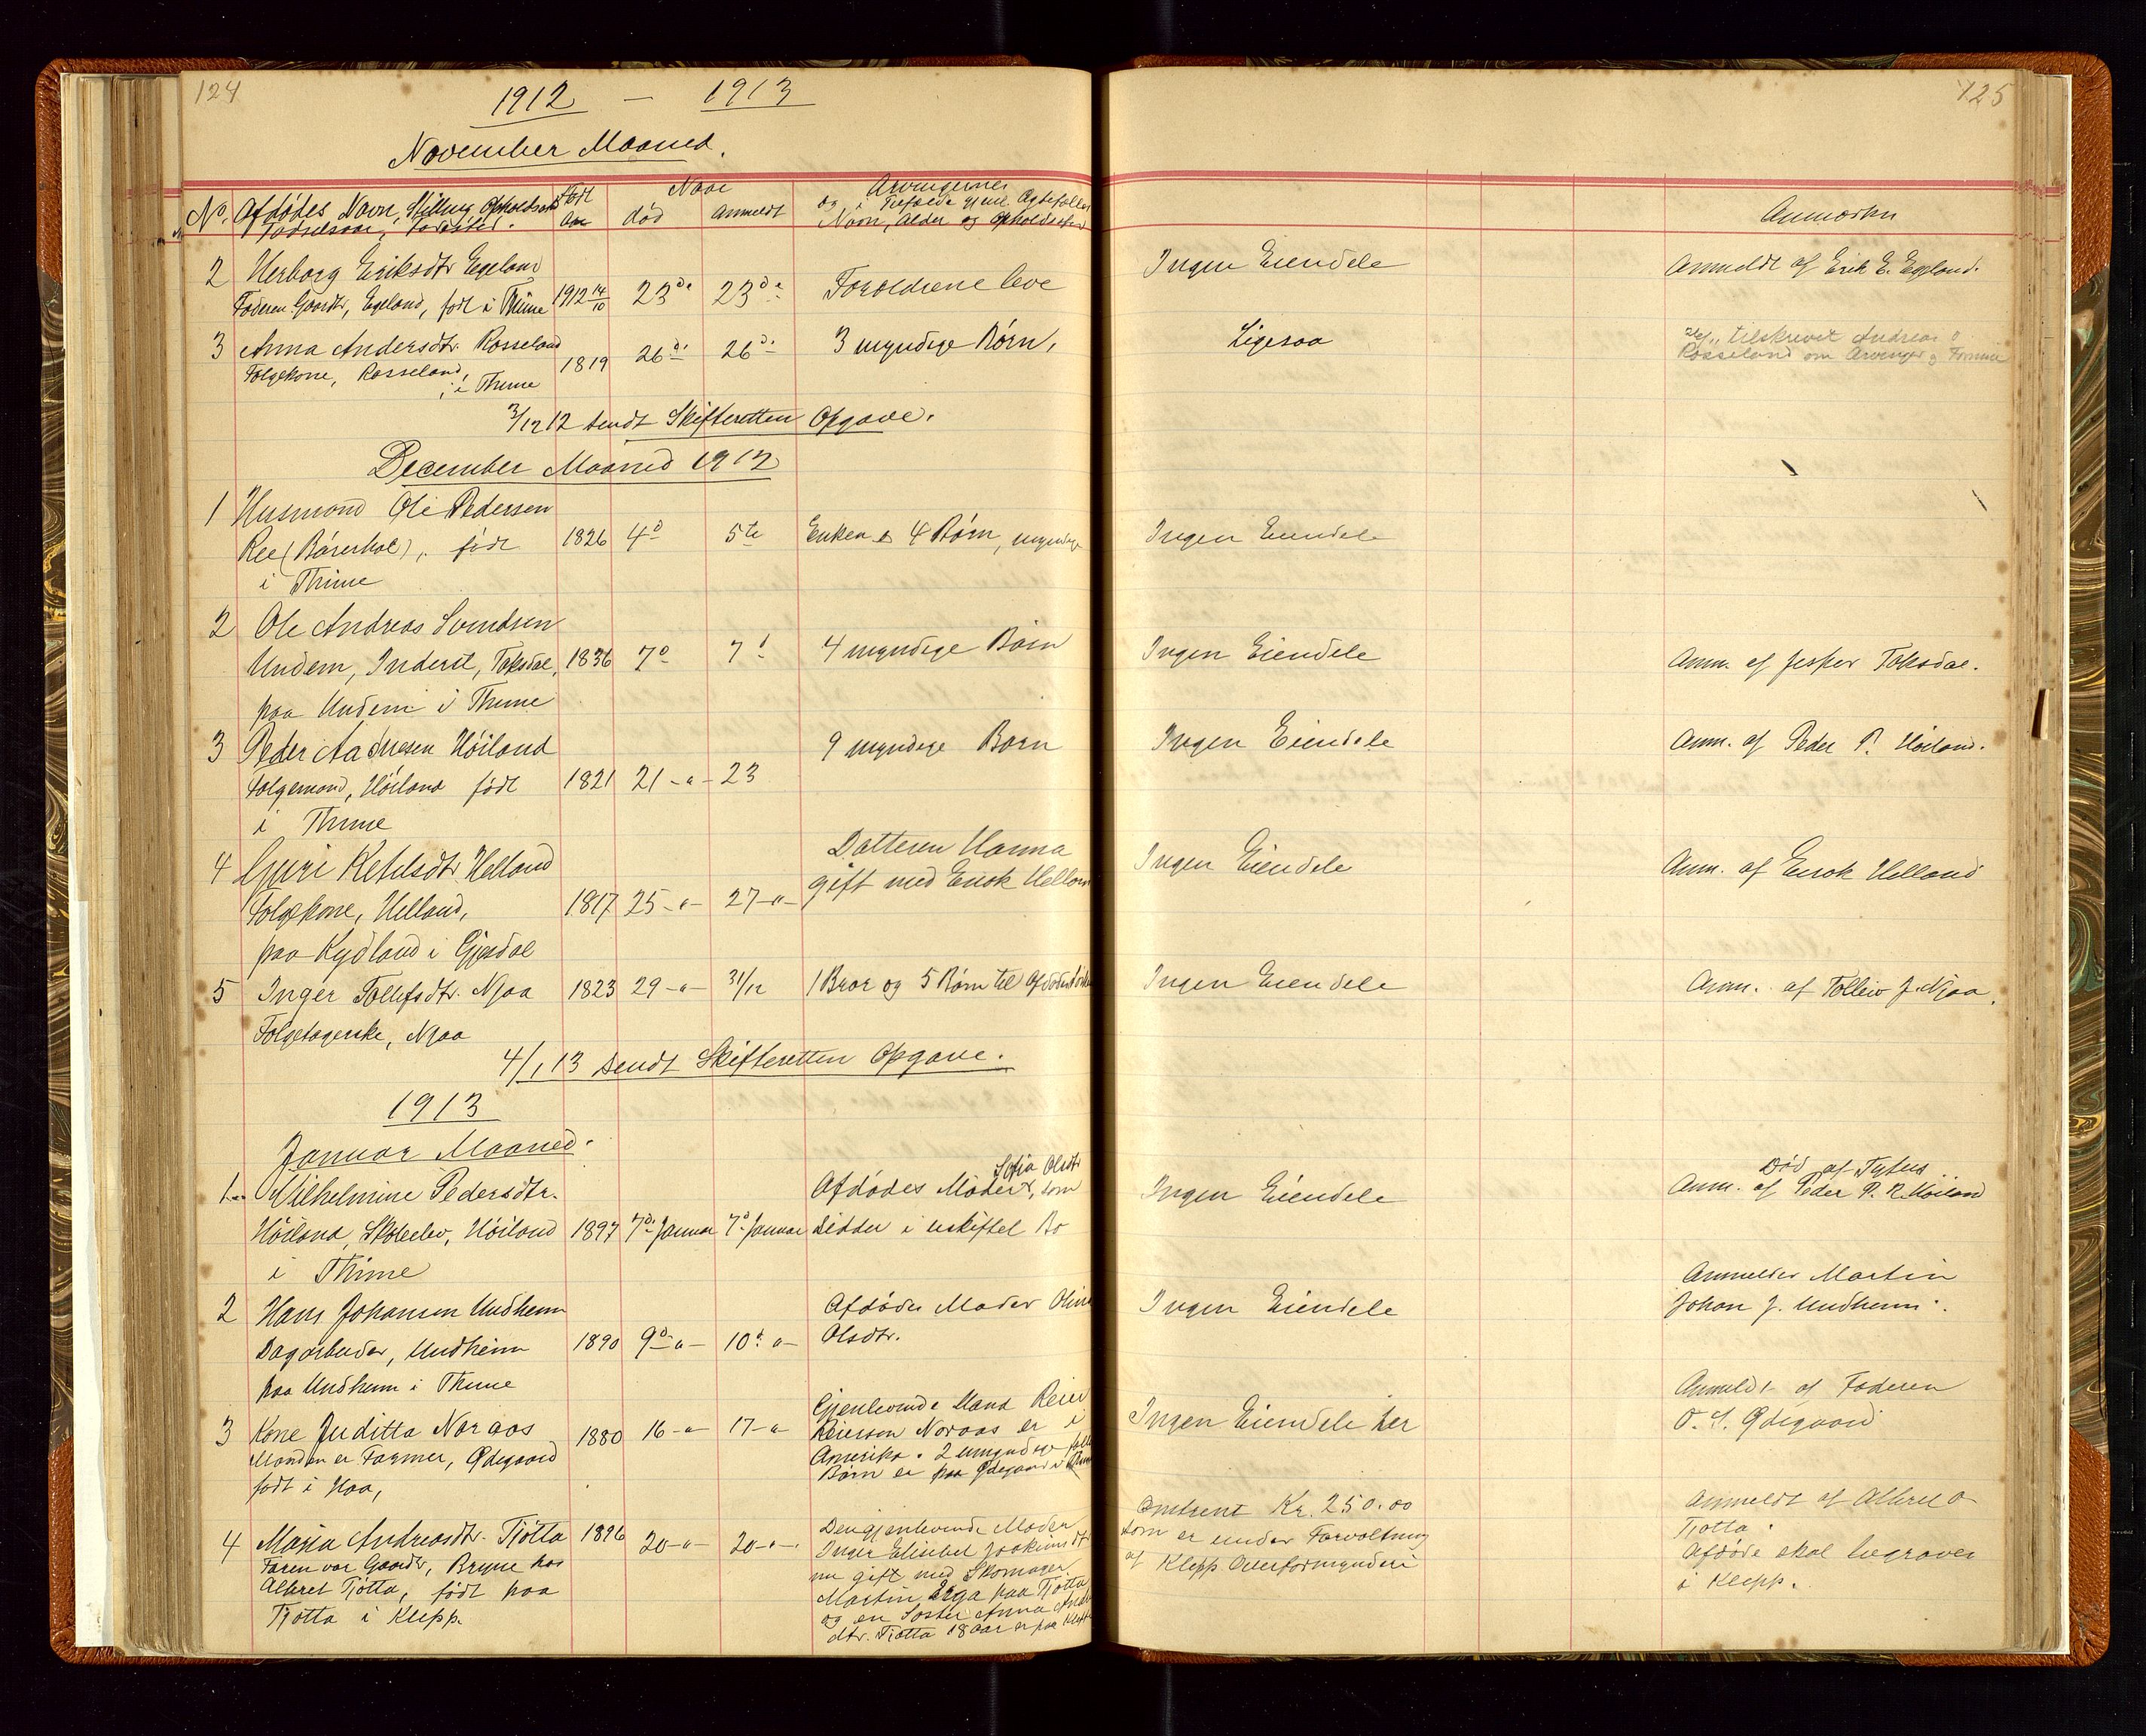 124
1912 — 1913
November Maaned.
No. Afdødes Navn, Stilling Opholdssted
Fødselsaar, Fødested.
Født Aar
Naar
død
anmeldt
Arvingernes
og i Tilfælde gjenl. Ægtefælles
Navn, Alder og Opholdssted
2 Herborg Eriksdtr Egeland
Faderen Gaardbr, Egeland, født i Thime 1912 14/10 23de 23de Forældrene leve
3 Anna Andersdtr. Rosseland
Følgekone, Rosseland, 1819 26de 26de 3 myndige Børn,
i Thime
3/12 12 sendt Skifteretten Opgave.
December Maaned 1912
1 Husmand Ole Pedersen
Ree (Bårerhol), født 1826 4de 5te Enken & 4 Børn, myndige
i Thime
2 Ole Andreas Svendsen
Undem, Inderst, Taksdal, 1836 7de 7de 4 myndige Børn
paa Undem i Thime
3 Peder Aadnesen Høiland 9 myndige Børn
Følgemand, Høiland født 1821 21 -"- 23
i Thime
4 Guri Ketilsdtr. Helland Datteren Hanna
gift med Enok Helland
Følgekone, Helland, 1817 25 -"- 27 -"-
paa Kydland i Gjesdal
5 Inger Tollefsdtr. Njaa 1823 29 -"- 31/12 1 Bror og 5 Børn til Afdødes
Følgetagerske, Njaa
4/1 13 sendt Skifteretten Opgave.
1913
Januar Maaned.
1. Vilhelmine Pedersdtr. Afdødes Moder Sofia Olsdtr, som
Høiland, Skoleelev, Høiland 1897 7de Januar 7de Januar sidder i uskiftet Bo
i Thime
2 Hans Johansen Undheim Afdødes Moder Oline
Dagarbeider, Undheim 1890 9de -"- 10de -"- Olsdtr.
paa Undheim i Thime
3 Kone Juditta Noraas 1880 16 -"- 17 -"- Gjenlevende Mand Reier
Reierson Noraas er i
Manden er Farmer, Ødegaard Amerika. 2 umyndige
født i Haa, Børn er paa Ødegaard i
4 Maria Andreasdtr. Tjøtta 1896 20 -"- 20 -"- Den gjenlevende Moder
Faren var Gaardbr, Bryne hos Inger Elisebet Joakimsdtr
Albret Tjøtta, født paa nu gift med Skomager
Tjøtta i Klepp. Martin Erga paa Tjøtta
og en Søster Anna
dtr. Tjøtta 18 Aar er paa Klepp
125
Anmærkn
Ingen Eiendele Anmeldt af Erik E. Egeland.
Ligesaa tilskrevet Andreas O
Rosseland om Arvinger og Formue
Ingen Eiendele
Ingen Eiendele Anm. af Jesper Taksdal.
Ingen Eiendele Anm. af Peder P. Høiland.
Ingen Eiendele Anm. af Enok Helland
Ingen Eiendele Anm. af Tolleiv J. Njaa.
Død af Tyfus
Ingen Eiendele Anm. af Peder P. R. Høiland
Anmeldes Martin
Ingen Eiendele Johan J. Undheim.
Anmeldt af Faderen
Ingen Eiendele her O. S. Ødegaard
Omtrent Kr. 250.00 Anmeldt af Albret O
som er under Forvaltning Tjøtta.
af Klepp Overformynderi Afdøde skal begraves
i Klepp.